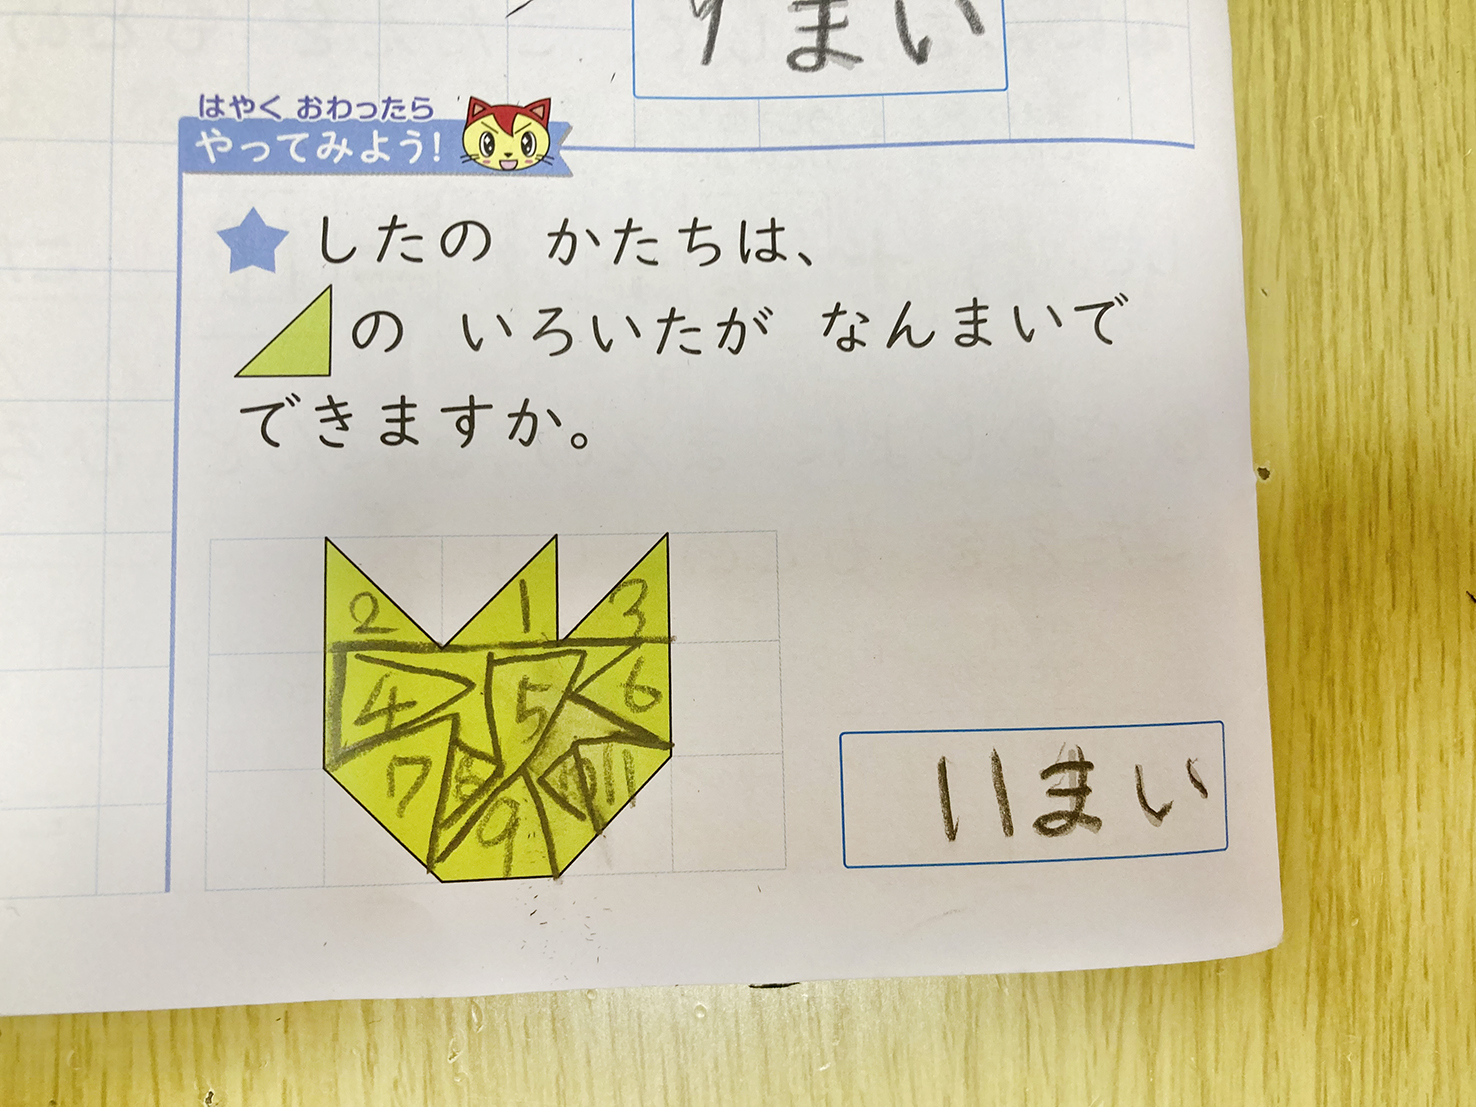 まい
はやく おわったら
やってみよう!
したの かたちは、
の いろいたが なんまいで
できますか。
2 1 3
4 5 6
7 8 9 10 11
11まい